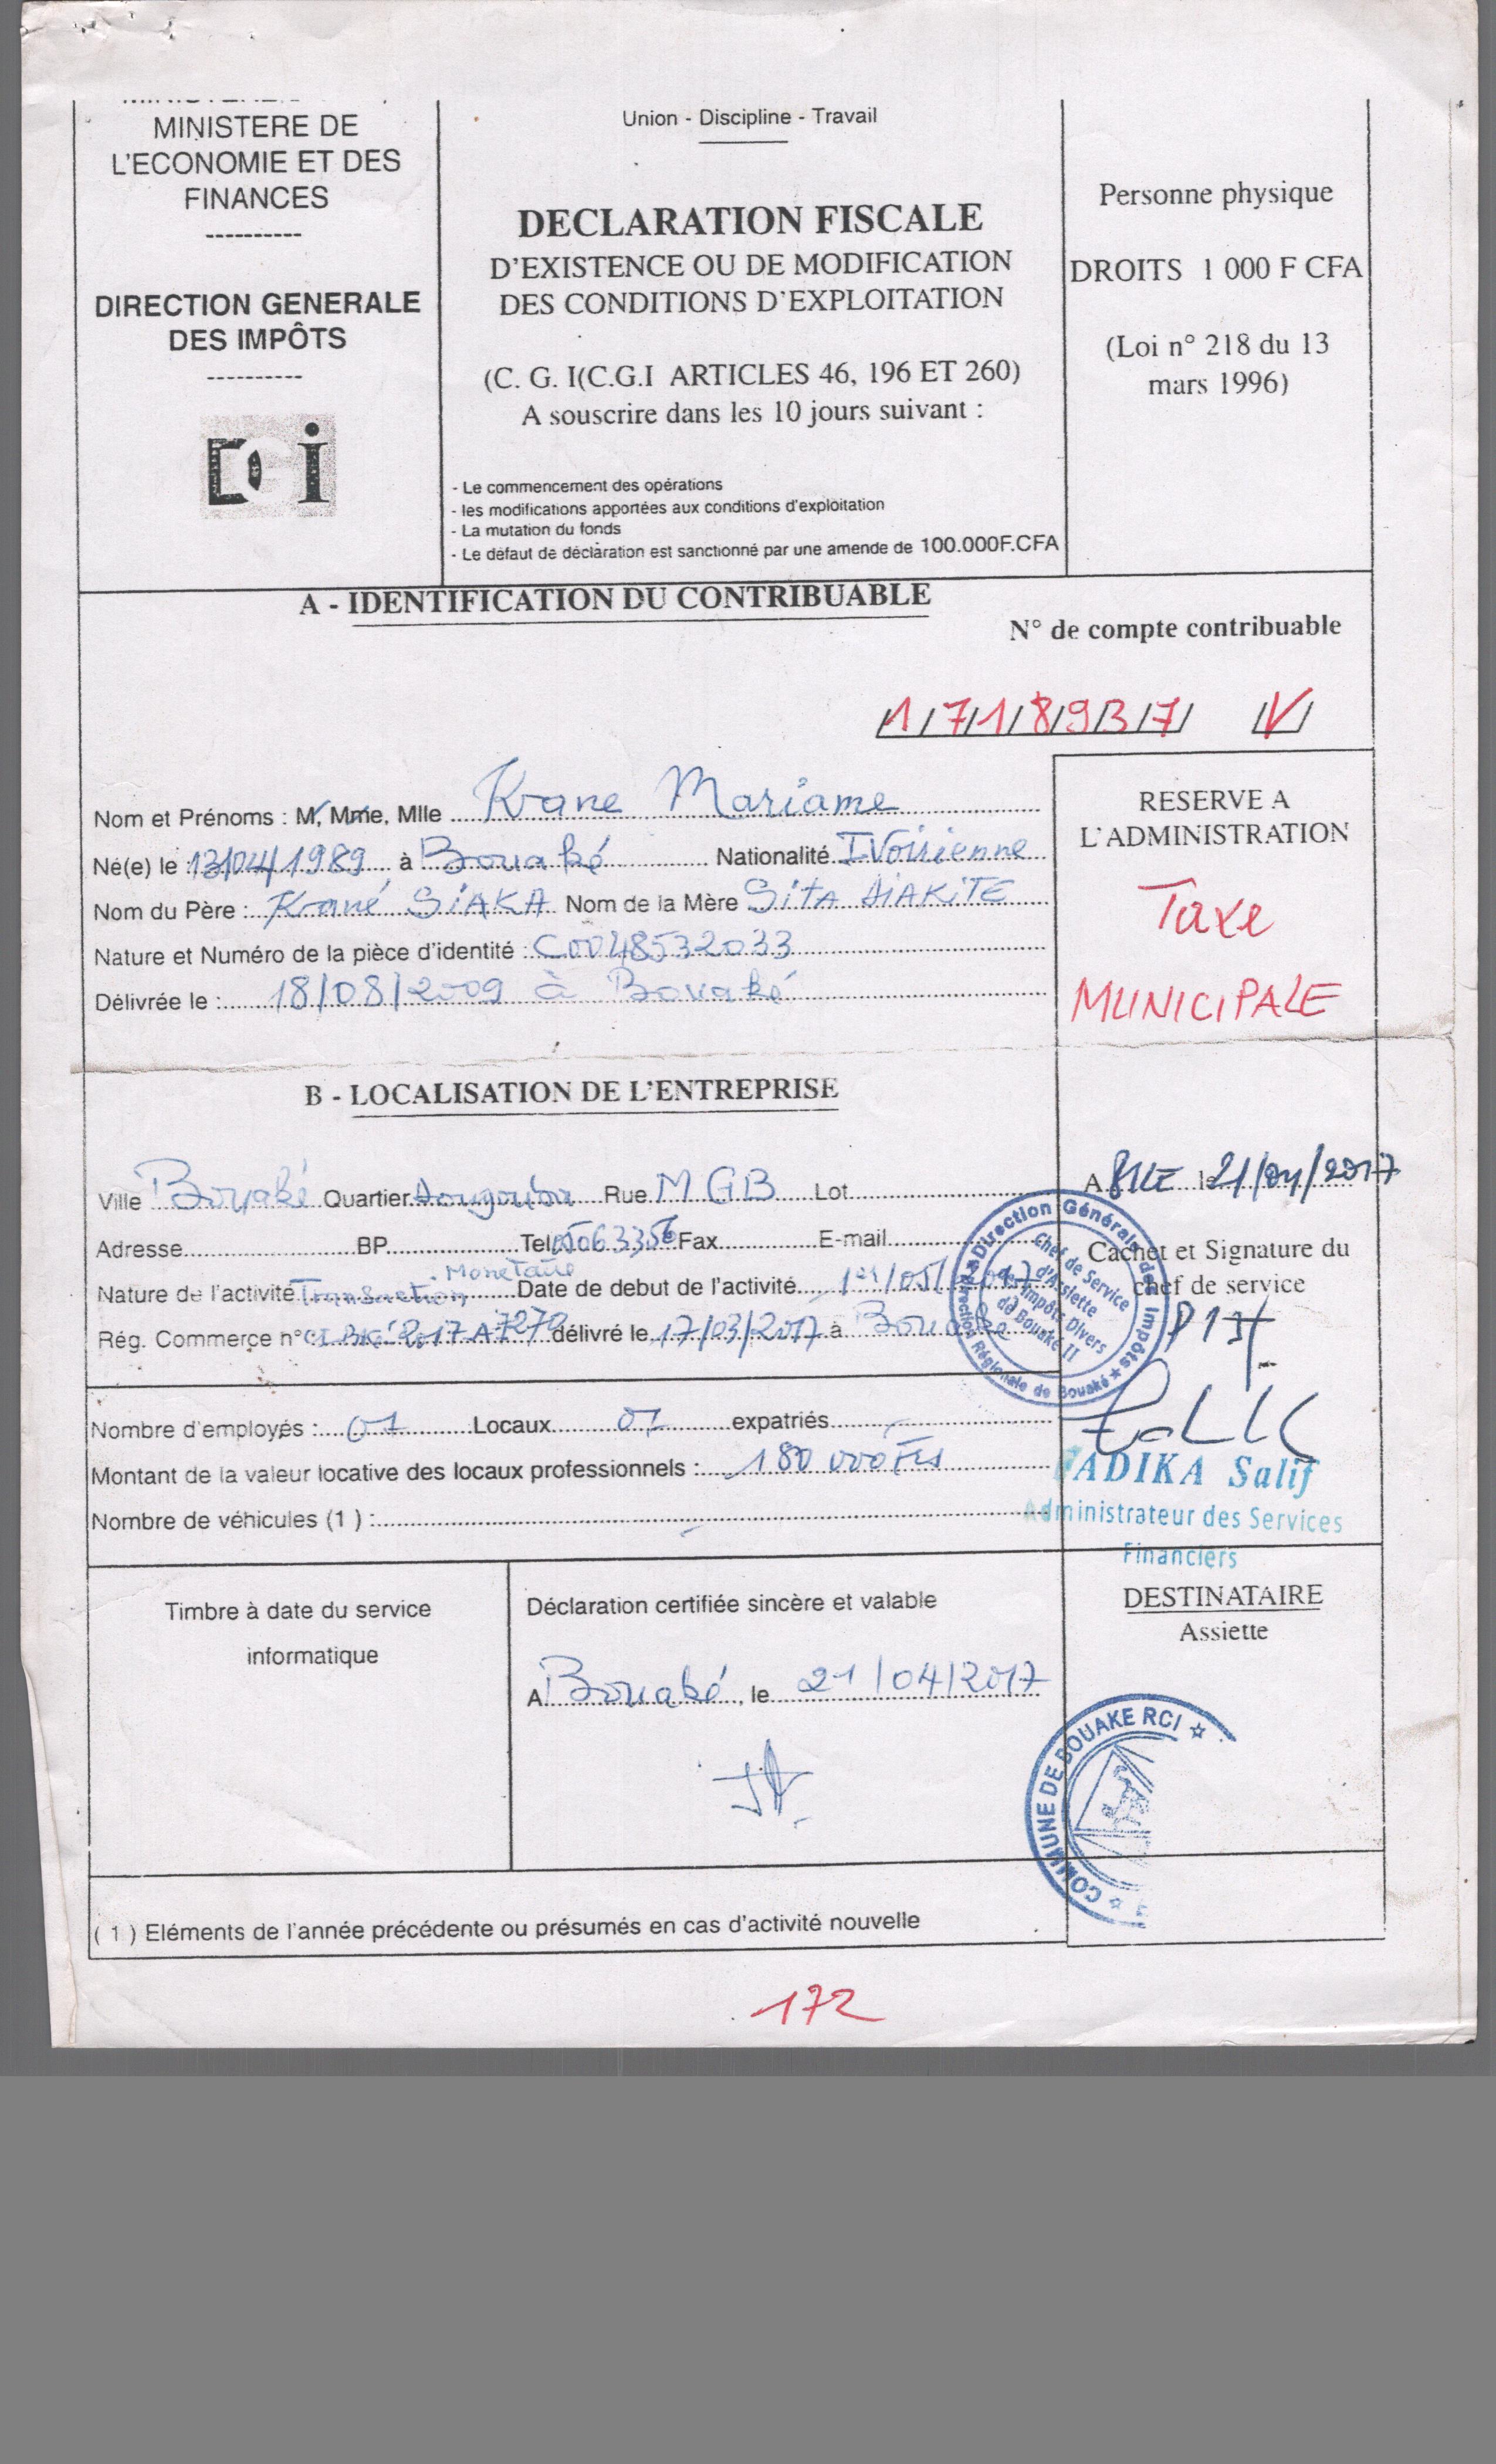 MINISTERE DE
L'ECONOMIE ET DES
FINANCES
----------
DIRECTION GENERALE
DES IMPÔTS
----------
DGi
Union - Discipline - Travail
DECLARATION FISCALE
D'EXISTENCE OU DE MODIFICATION
DES CONDITIONS D'EXPLOITATION
(C. G. I(C.G.I ARTICLES 46, 196 ET 260)
A souscrire dans les 10 jours suivant :
- Le commencement des opérations
- les modifications apportées aux conditions d'exploitation
- La mutation du fonds
- Le défaut de déclaration est sanctionné par une amende de 100.000F.CFA
Personne physique
DROITS 1 000 F CFA
(Loi n° 218 du 13
mars 1996)
A - IDENTIFICATION DU CONTRIBUABLE
N° de compte contribuable
/1/7/1/8/9/3/7/ /V/
Nom et Prénoms : M, Mme, Mlle Krane Mariame
Né(e) le 13/04/1989 à Bouaké Nationalité Ivoirienne
Nom du Père : Krané SIAKA Nom de la Mère Sita DIAKITE
Nature et Numéro de la pièce d'identité : C0048532033
Délivrée le : 18/08/2009 à Bouaké
RESERVE A
L'ADMINISTRATION
Taxe
MUNICIPALE
B - LOCALISATION DE L'ENTREPRISE
Ville Bouaké Quartier Dougouba Rue MGB Lot
Adresse BP Tel Fax E-mail
Nature de l'activité Transaction Monetaire Date de debut de l'activité 1er/05/2017
Rég. Commerce n° 2017 A 7270 délivré le 17/03/2017 à Bouaké
A BKE le 21/04/2017
Cachet et Signature du
chef de service
Direction Générale des Impôts
Direction Régionale de Bouaké
Chef de Service
d'Assiette
Impôts Divers
de Bouaké II
Nombre d'employés : 01 Locaux 01 expatriés
Montant de la valeur locative des locaux professionnels : 180 000 Frs
Nombre de véhicules (1 ) :
ADIKA Salif
Administrateur des Services
Financiers
Timbre à date du service
informatique
Déclaration certifiée sincère et valable
A Bouaké, le 21/04/2017
DESTINATAIRE
Assiette
COMMUNE DE BOUAKE RCI
( 1 ) Eléments de l'année précédente ou présumés en cas d'activité nouvelle
172